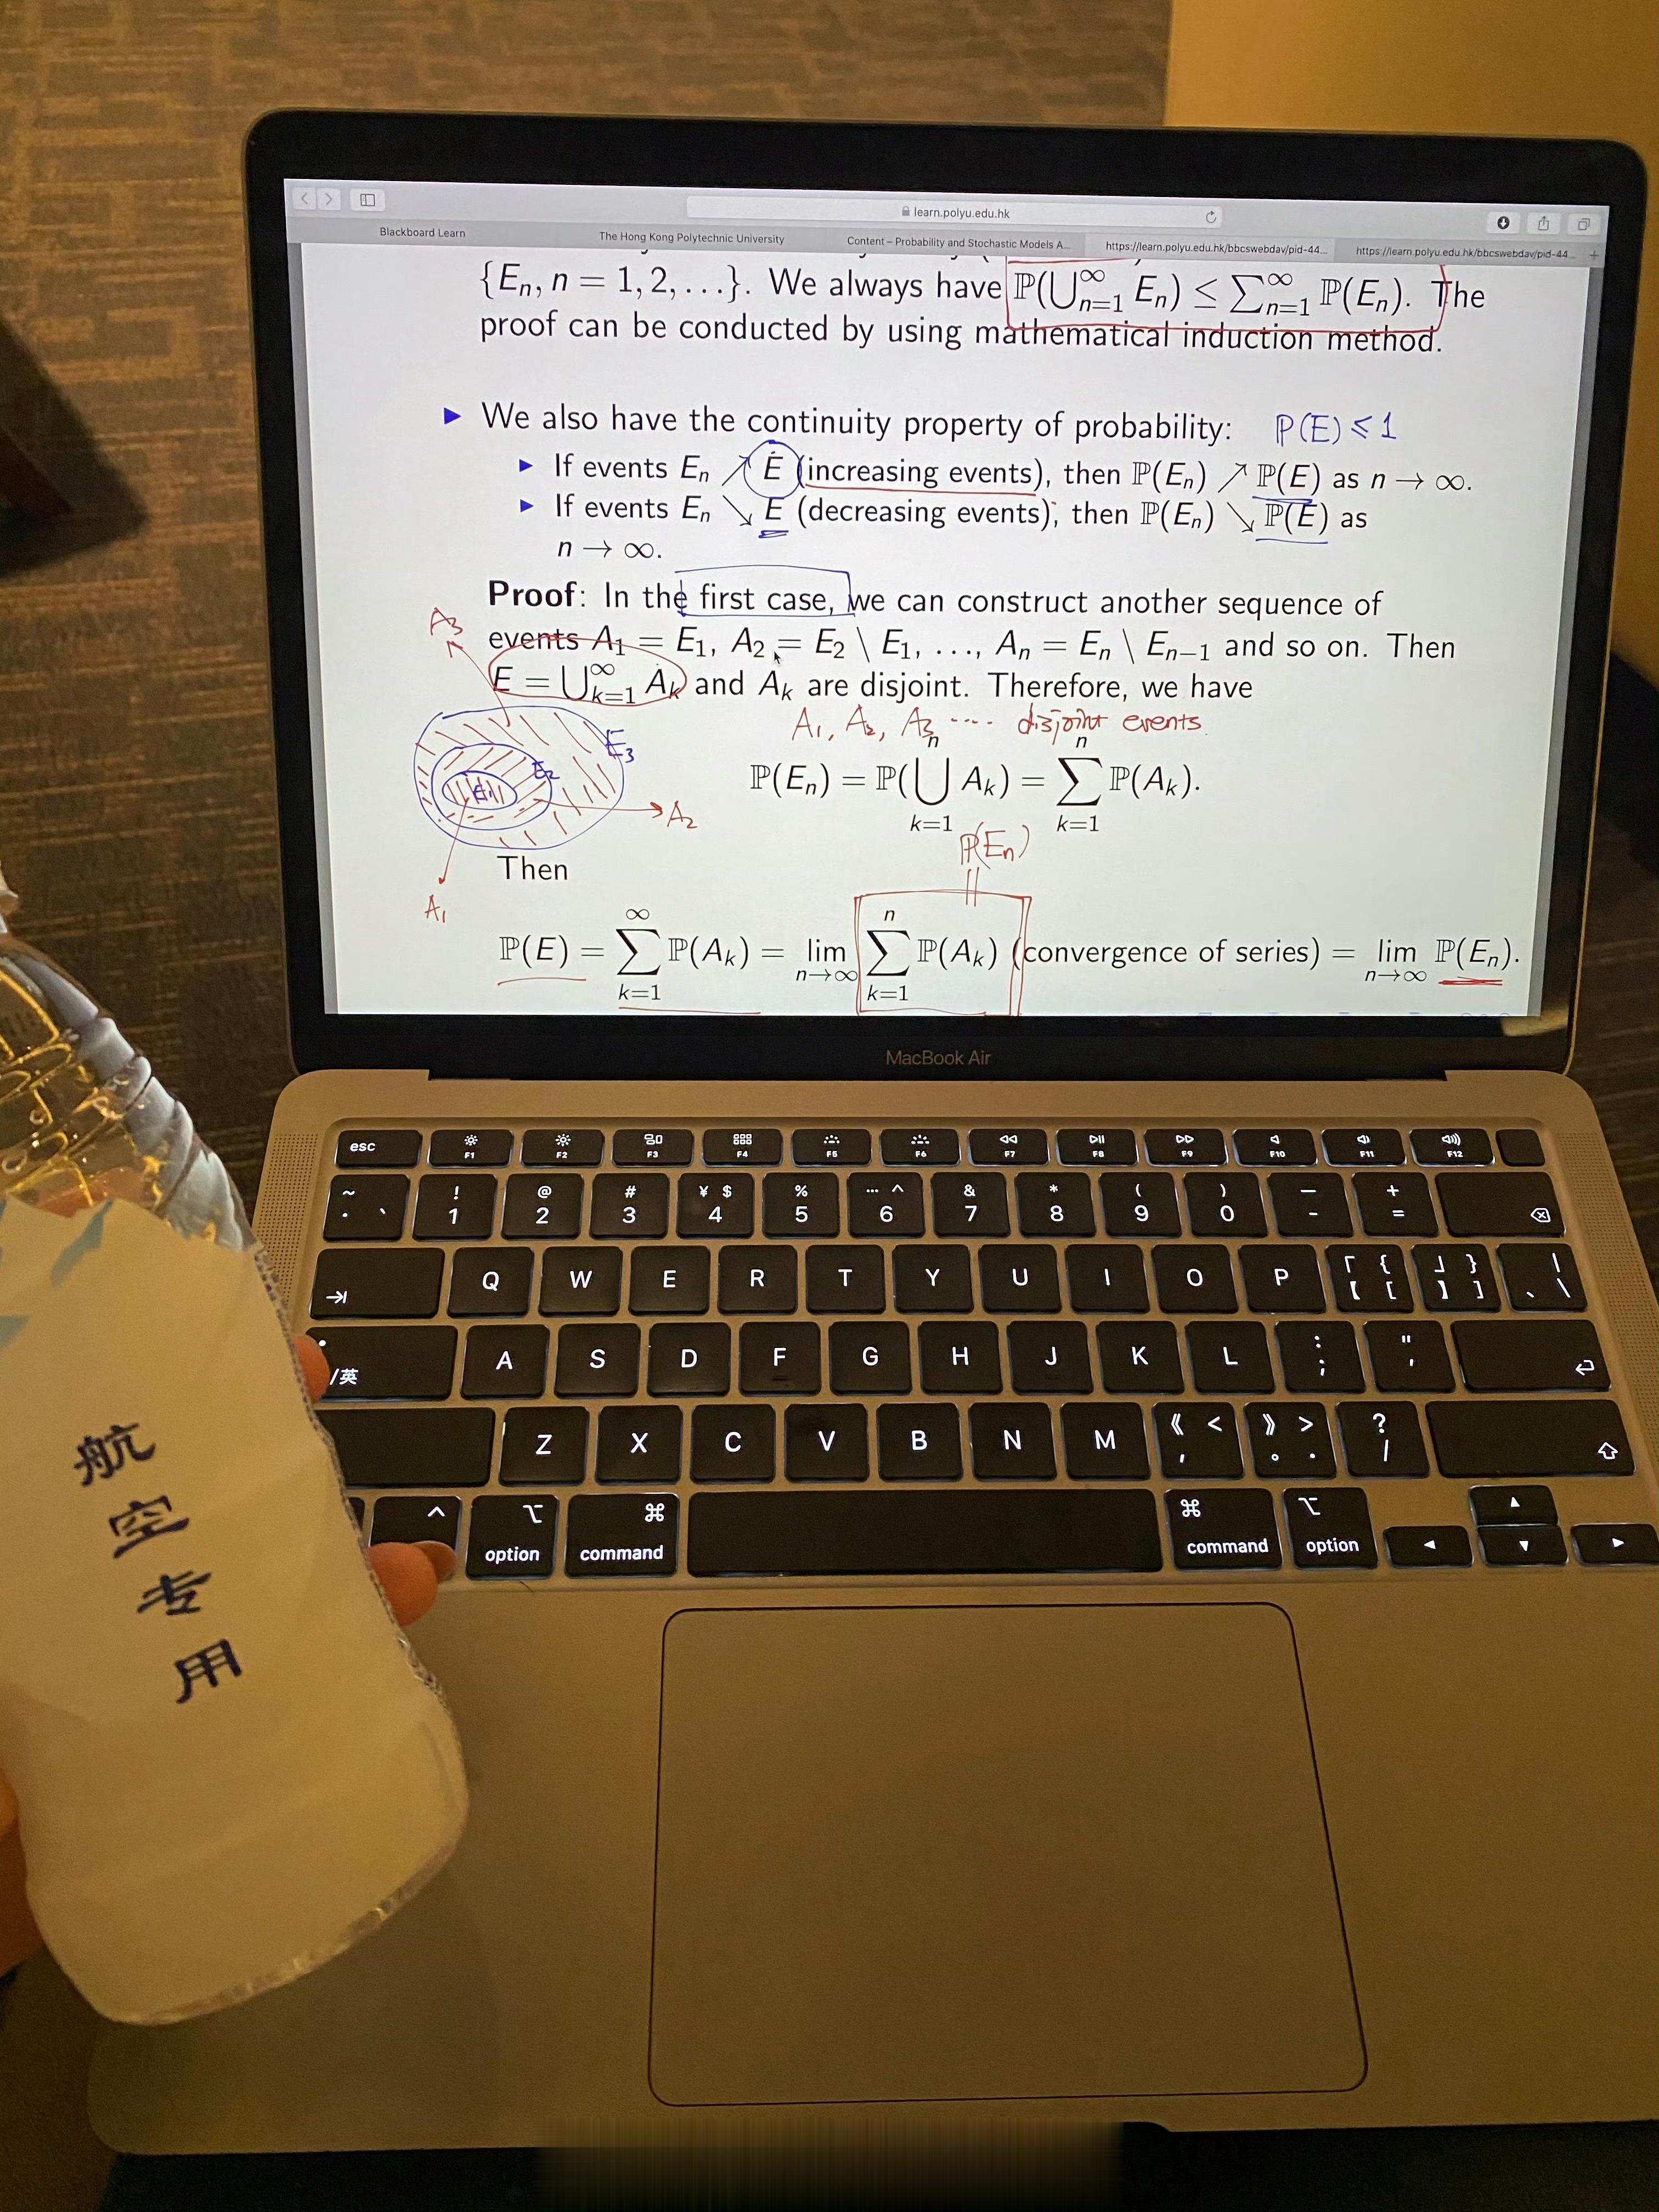 learn.polyu.edu.hk
Blackboard Learn
The Hong Kong Polytechnic University
Content – Probability and Stochastic Models A...
https://learn.polyu.edu.hk/bbcswebdav/pid-44...
https://learn.polyu.edu.hk/bbcswebdav/pid-44...
{Eₙ, n = 1, 2, …}. We always have ℙ(⋃ₙ₌₁^∞ Eₙ) ≤ ∑ₙ₌₁^∞ ℙ(Eₙ). The
proof can be conducted by using mathematical induction method.
▶ We also have the continuity property of probability: ℙ(E) ⩽ 1
▶ If events Eₙ ↗ E (increasing events), then ℙ(Eₙ) ↗ ℙ(E) as n → ∞.
▶ If events Eₙ ↘ E (decreasing events), then ℙ(Eₙ) ↘ ℙ(E) as
n → ∞.
Proof: In the first case, we can construct another sequence of
A₃
events A₁ = E₁, A₂ = E₂ \ E₁, …, Aₙ = Eₙ \ Eₙ₋₁ and so on. Then
E = ⋃ₖ₌₁^∞ Aₖ and Aₖ are disjoint. Therefore, we have
A₁, A₂, A₃ ···· disjoint events.
E₃
E₂
E₁
ℙ(Eₙ) = ℙ(⋃ₖ₌₁ⁿ Aₖ) = ∑ₖ₌₁ⁿ ℙ(Aₖ).
A₂
ℙ(Eₙ)
Then
A₁
ℙ(E) = ∑ₖ₌₁^∞ ℙ(Aₖ) = lim n→∞ ∑ₖ₌₁ⁿ ℙ(Aₖ) (convergence of series) = lim n→∞ ℙ(Eₙ).
MacBook Air
esc F1 F2 F3 F4 F5 F6 F7 F8 F9 F10 F11 F12
~ ! @ # ¥ $ % … ^ & * ( ) — +
· ` 1 2 3 4 5 6 7 8 9 0 - =
Q W E R T Y U I O P 「 { 【 [ 」 } 】 ] | 、 \
/英 A S D F G H J K L : ; " '
Z X C V B N M 《 < , 》 > 。 . ? /
^ option command command option
航
空
专
用